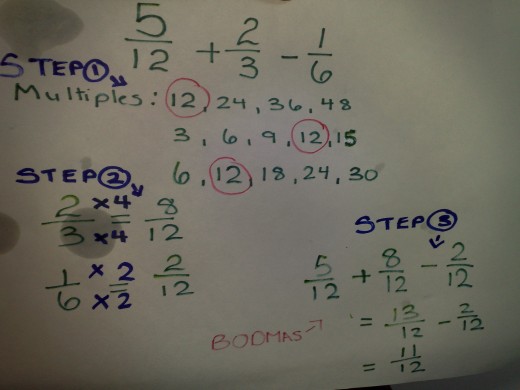 5/12 + 2/3 - 1/6
STEP ①
Multiples: 12, 24, 36, 48
3, 6, 9, 12, 15
6, 12, 18, 24, 30
STEP ②
2/3 ×4/×4 = 8/12
1/6 ×2/×2 = 2/12
STEP ③
5/12 + 8/12 - 2/12
BODMAS → = 13/12 - 2/12
= 11/12